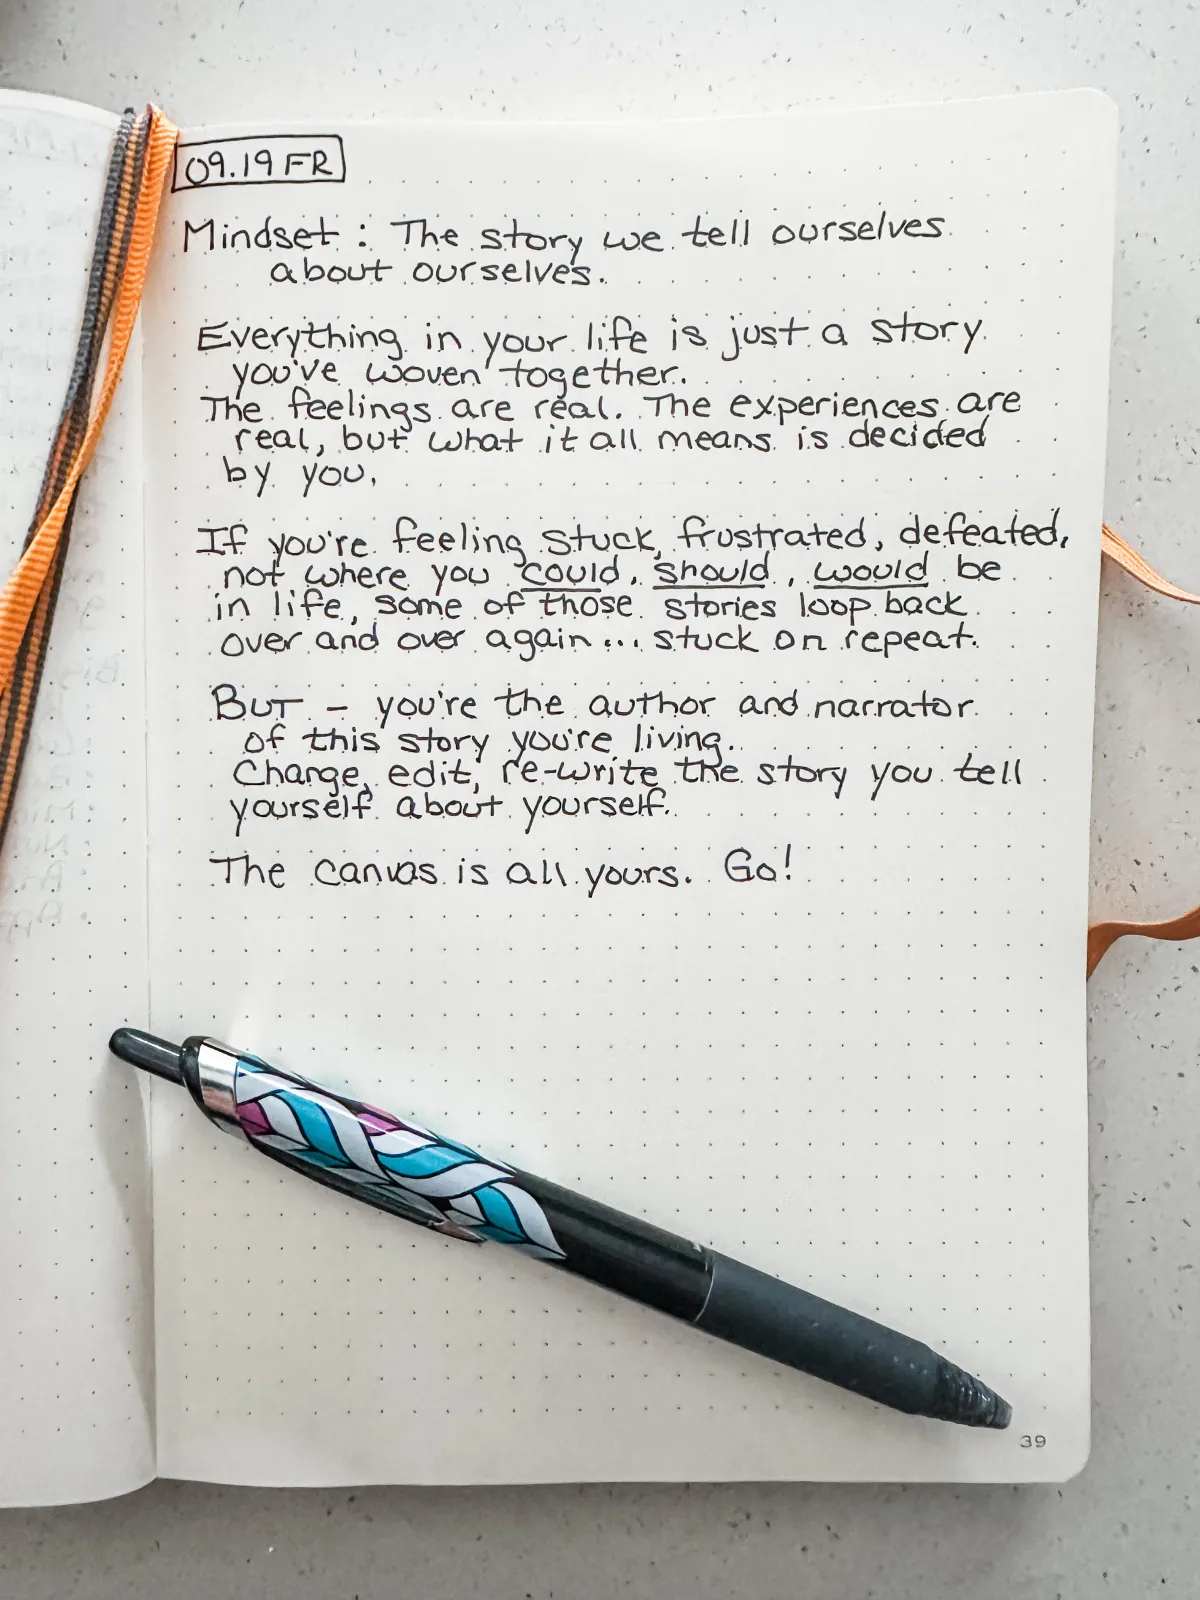 09.19 FR
Mindset: The story we tell ourselves
about ourselves.
Everything in your life is just a story
you've woven together.
The feelings are real. The experiences are
real, but what it all means is decided
by you.
If you're feeling stuck, frustrated, defeated,
not where you could, should, would be
in life, some of those stories loop back
over and over again... stuck on repeat.
BUT - you're the author and narrator
of this story you're living.
Change, edit, re-write the story you tell
yourself about yourself.
The canvas is all yours. Go!
39